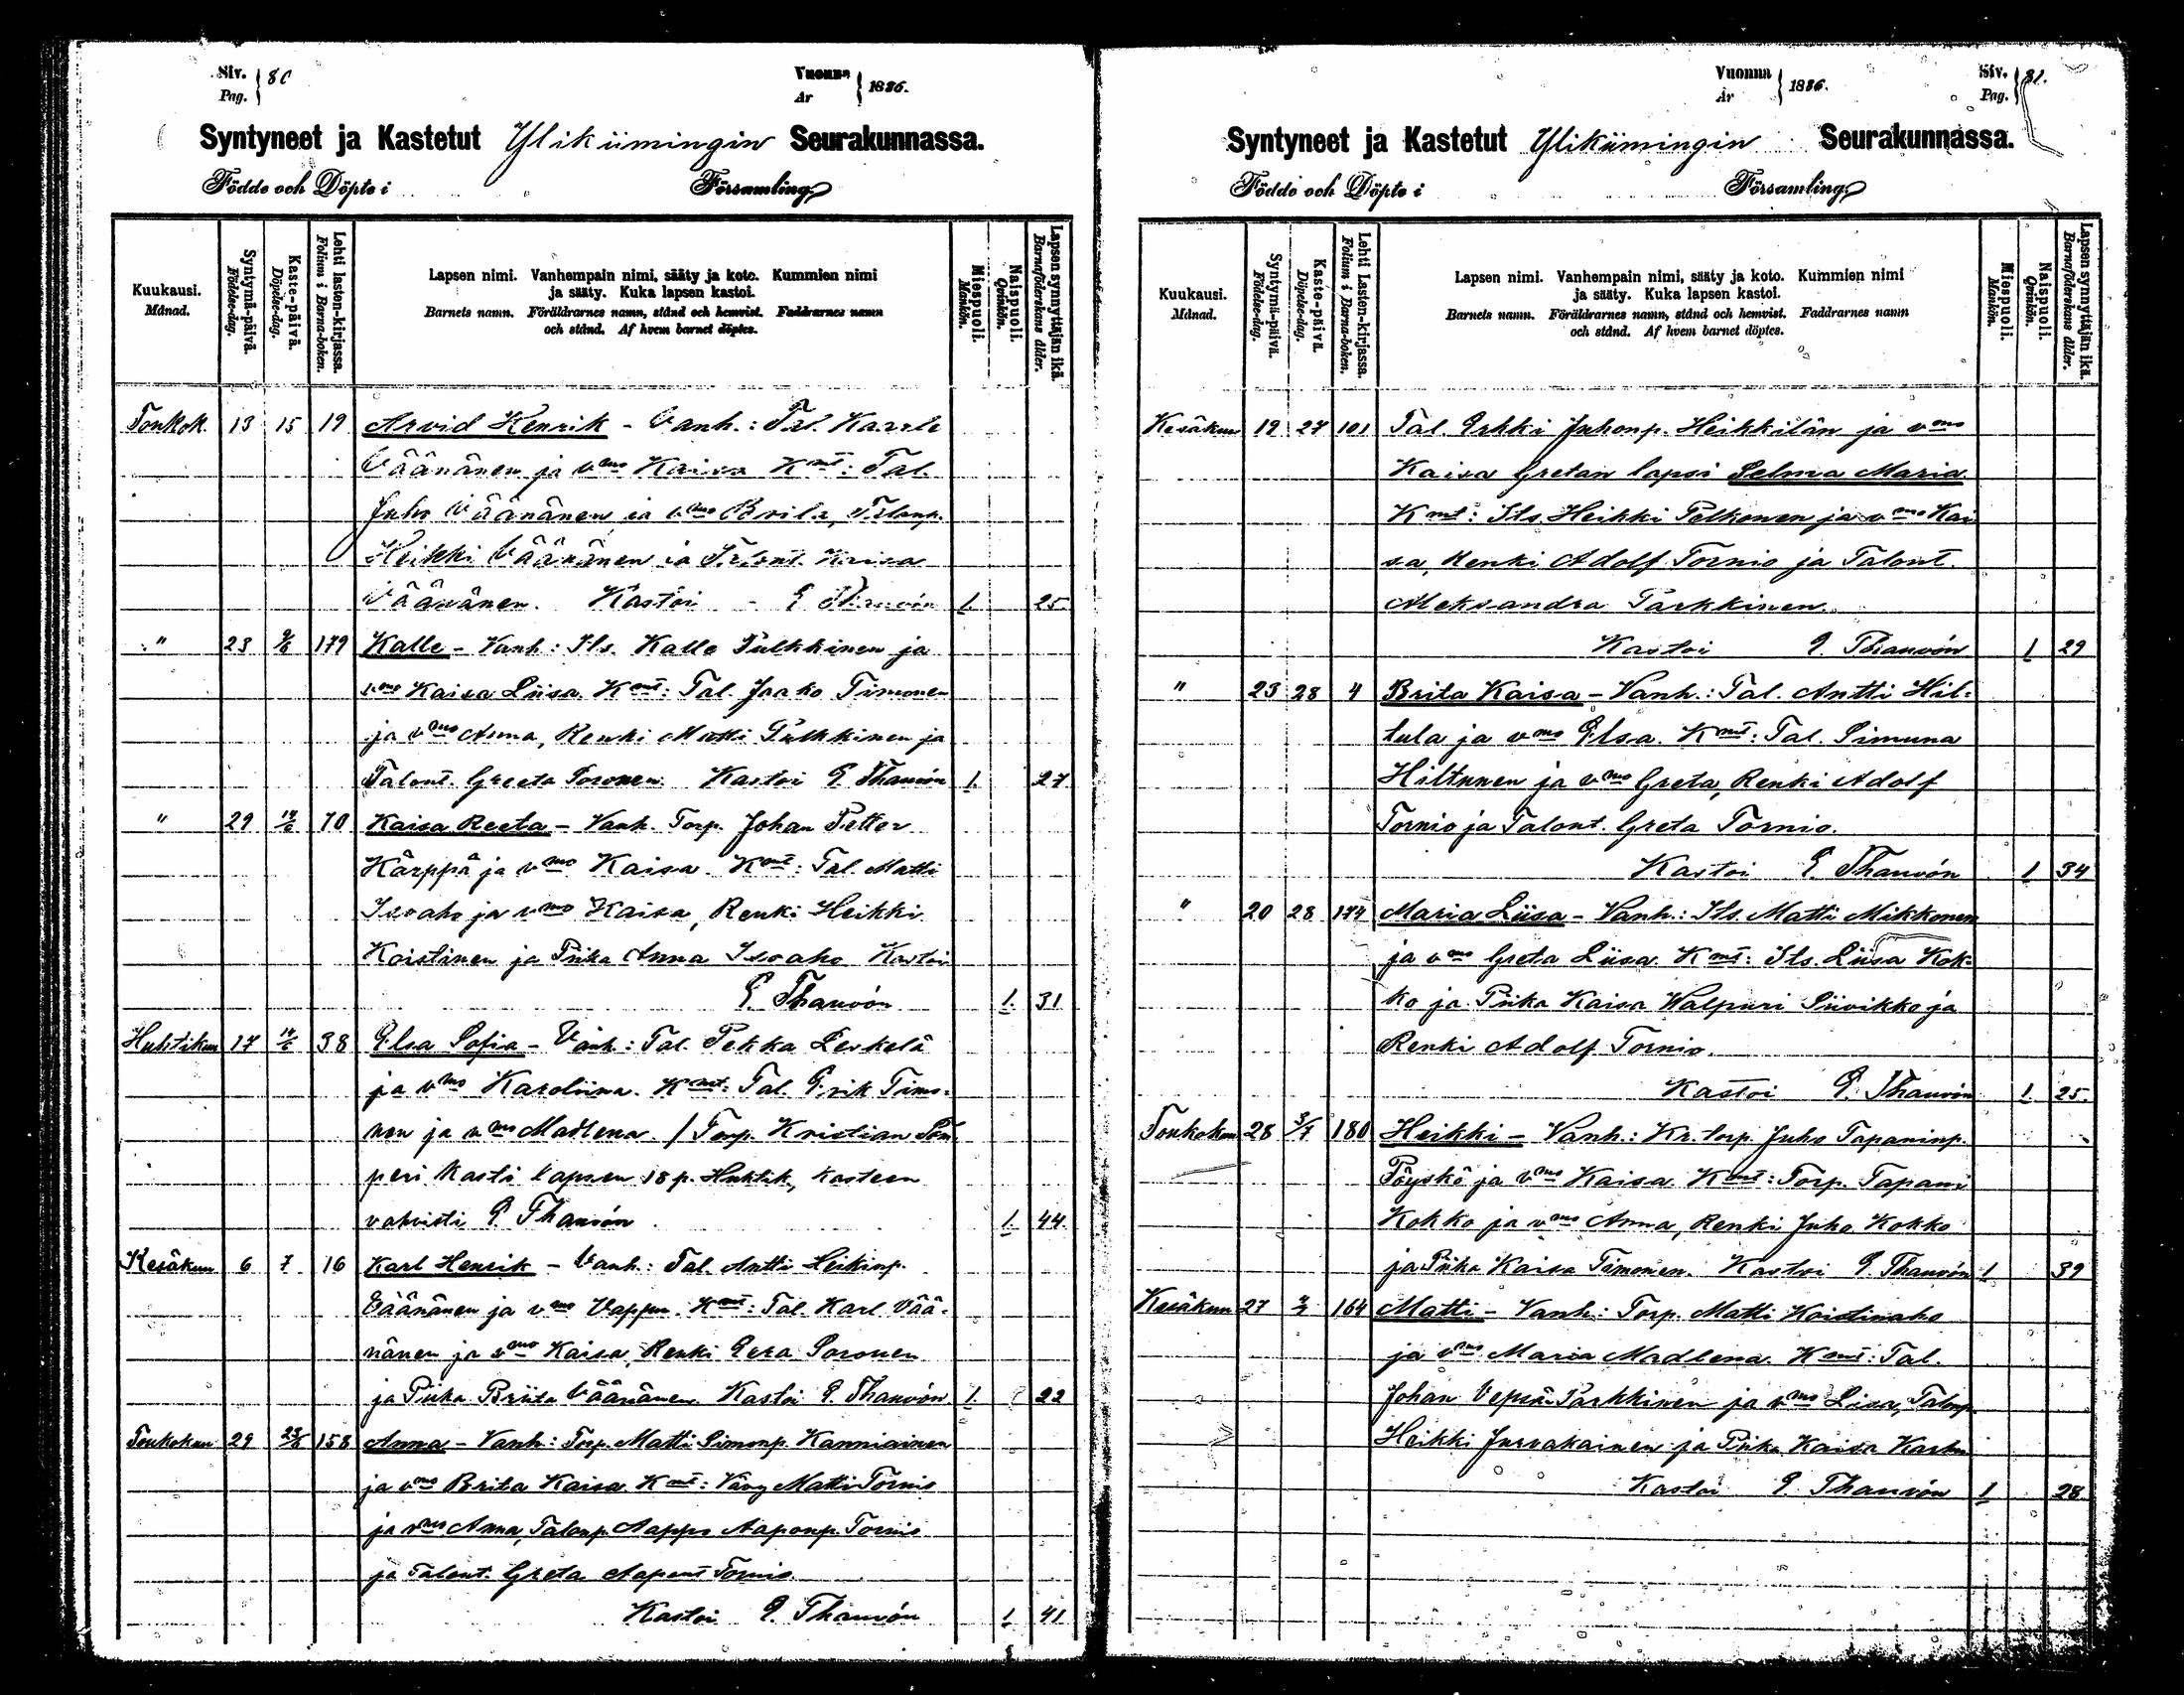 Siv.
Pag. 80
Vuonna
År 1886.
Syntyneet ja Kastetut Ylikiimingin Seurakunnassa.
Födde och Döpte i Församling
Kuukausi.
Månad.
Syntymä-päivä.
Födelse-dag.
Kaste-päivä.
Döpelse-dag.
Lehti lasten-kirjassa.
Folium i Barna-boken.
Lapsen nimi. Vanhempain nimi, sääty ja koto. Kummien nimi
ja sääty. Kuka lapsen kastoi.
Barnets namn. Föräldrarnes namn, stånd och hemvist. Faddrarnes namn
och stånd. Af hvem barnet döptes.
Miespuoli.
Mankön.
Naispuoli.
Qvinkön.
Lapsen synnyttäjän ikä.
Barnaföderskans ålder.
Toukok. 13 15 19 Arvid Henrik - Vanh.: Tal. Kaarle
Väänänen ja vmo Kaisa Kmt: Tal.
Juho Väänänen ja vmo Briita, Talonp.
Heikki Väänänen ja Talont. Kaisa
Väänänen. Kastoi - E Thauvón 1. 25.
" 23 9/6 179 Kalle - Vanh: Its. Kalle Pulkkinen ja
vmo Kaisa Liisa Kmt: Tal. Jaako Timonen
ja vmo Anna, Renki Matti Pulkkinen ja
Talont. Greeta Soronen. Kastoi E Thauvón 1. 27
" 29 14/6 70 Kaisa Reeta - Vanh. Torp. Johan Petter
Kärppä ja vmo Kaisa. Kmt: Tal. Matti
Isoaho ja vmo Kaisa, Renki Heikki
Koistinen ja Piika Anna Isoaho Kastoi
E. Thauvón 1. 31
Huhtikuu 17 14/6 38 Elsa Sofia - Vanh: Tal. Pekka Leskelä
ja vmo Karoliina. Kmt: Tal. Erik Timo-
nen ja vmo Madlena. / Torp. Kristian
peri Kasti lapsen 18 p. Huhtik, kasteen
vahvisti E. Thauvón 1. 44
Kesäkuu 6 7 16 Karl Henrik - Vanh: Tal. Antti Heikinp.
Väänänen ja vmo Vappu. Kmt: Tal. Karl Vää-
nänen ja vmo Kaisa, Renki Eera Soronen
ja Piika Briita Väänänen. Kastoi E. Thauvón 1. 22
Toukokuu 29 23/6 158 Anna - Vanh: Torp. Matti Simonp. Kanniainen
ja vmo Brita Kaisa Kmt: Vävy Matti Tornio
ja vmo Anna, Talonp. Aappo Aaponp. Tornio
ja Talont. Greta Aapont Tornio
Kastoi E. Thauvón 1 41
Vuonna
År 1886.
Siv.
Pag. 81.
Syntyneet ja Kastetut Ylikiimingin Seurakunnassa.
Födde och Döpte i Församling
Kuukausi.
Månad.
Syntymä-päivä.
Födelse-dag.
Kaste-päivä.
Döpelse-dag.
Lehti Lasten-kirjassa.
Folium i Barna-boken.
Lapsen nimi. Vanhempain nimi, sääty ja koto. Kummien nimi
ja sääty. Kuka lapsen kastoi.
Barnets namn. Föräldrarnes namn, stånd och hemvist. Faddrarnes namn
och stånd. Af hvem barnet döptes.
Miespuoli.
Mankön.
Naispuoli.
Qvinkön.
Lapsen synnyttäjän ikä.
Barnaföderskans ålder.
Kesäkuu 19 27 101 Tal. Erkki Juhonp. Heikkilän ja vmo
Kaisa Gretan lapsi Selma Maria.
Kmt: Its. Heikki Pelkonen ja vmo Kai
sa, Renki Adolf Tornio ja Talont.
Aleksandra Parkkinen.
Kastoi E. Thauvón 1 29
" 23 28 4 Brita Kaisa - Vanh.: Tal. Antti Hil-
tula ja vmo Elsa. Kmt: Tal. Simuna
Hiltunen ja vmo Greta, Renki Adolf
Tornio ja Talont. Greta Tornio.
Kastoi E. Thauvón 1 34
" 20 28 174 Maria Liisa - Vanh.: Its. Matti Mikkonen
ja vmo Greta Liisa. Kmt: Its. Liisa Kok-
ko ja Piika Kaisa Walpuri Siivikko ja
Renki Adolf Tornio.
Kastoi E. Thauvón 1. 25.
Toukokuu 28 3/7 180 Heikki - Vanh.: Kr. torp. Juho Tapaninp.
Pöyskö ja vmo Kaisa. Kmt: Torp. Tapani
Kokko ja vmo Anna, Renki Juho Kokko
ja Piika Kaisa Timonen. Kastoi E. Thauvón 1 39
Kesäkuu 27 164 Matti - Vanh: Torp. Matti Koistinaho
ja vmo Maria Madlena. Kmt: Tal.
Johan Vepsä-Parkkinen ja vmo Liisa, Talonp.
Heikki Jurvakainen ja Piika Kaisa Karhu
Kastoi E. Thauvón 1 28